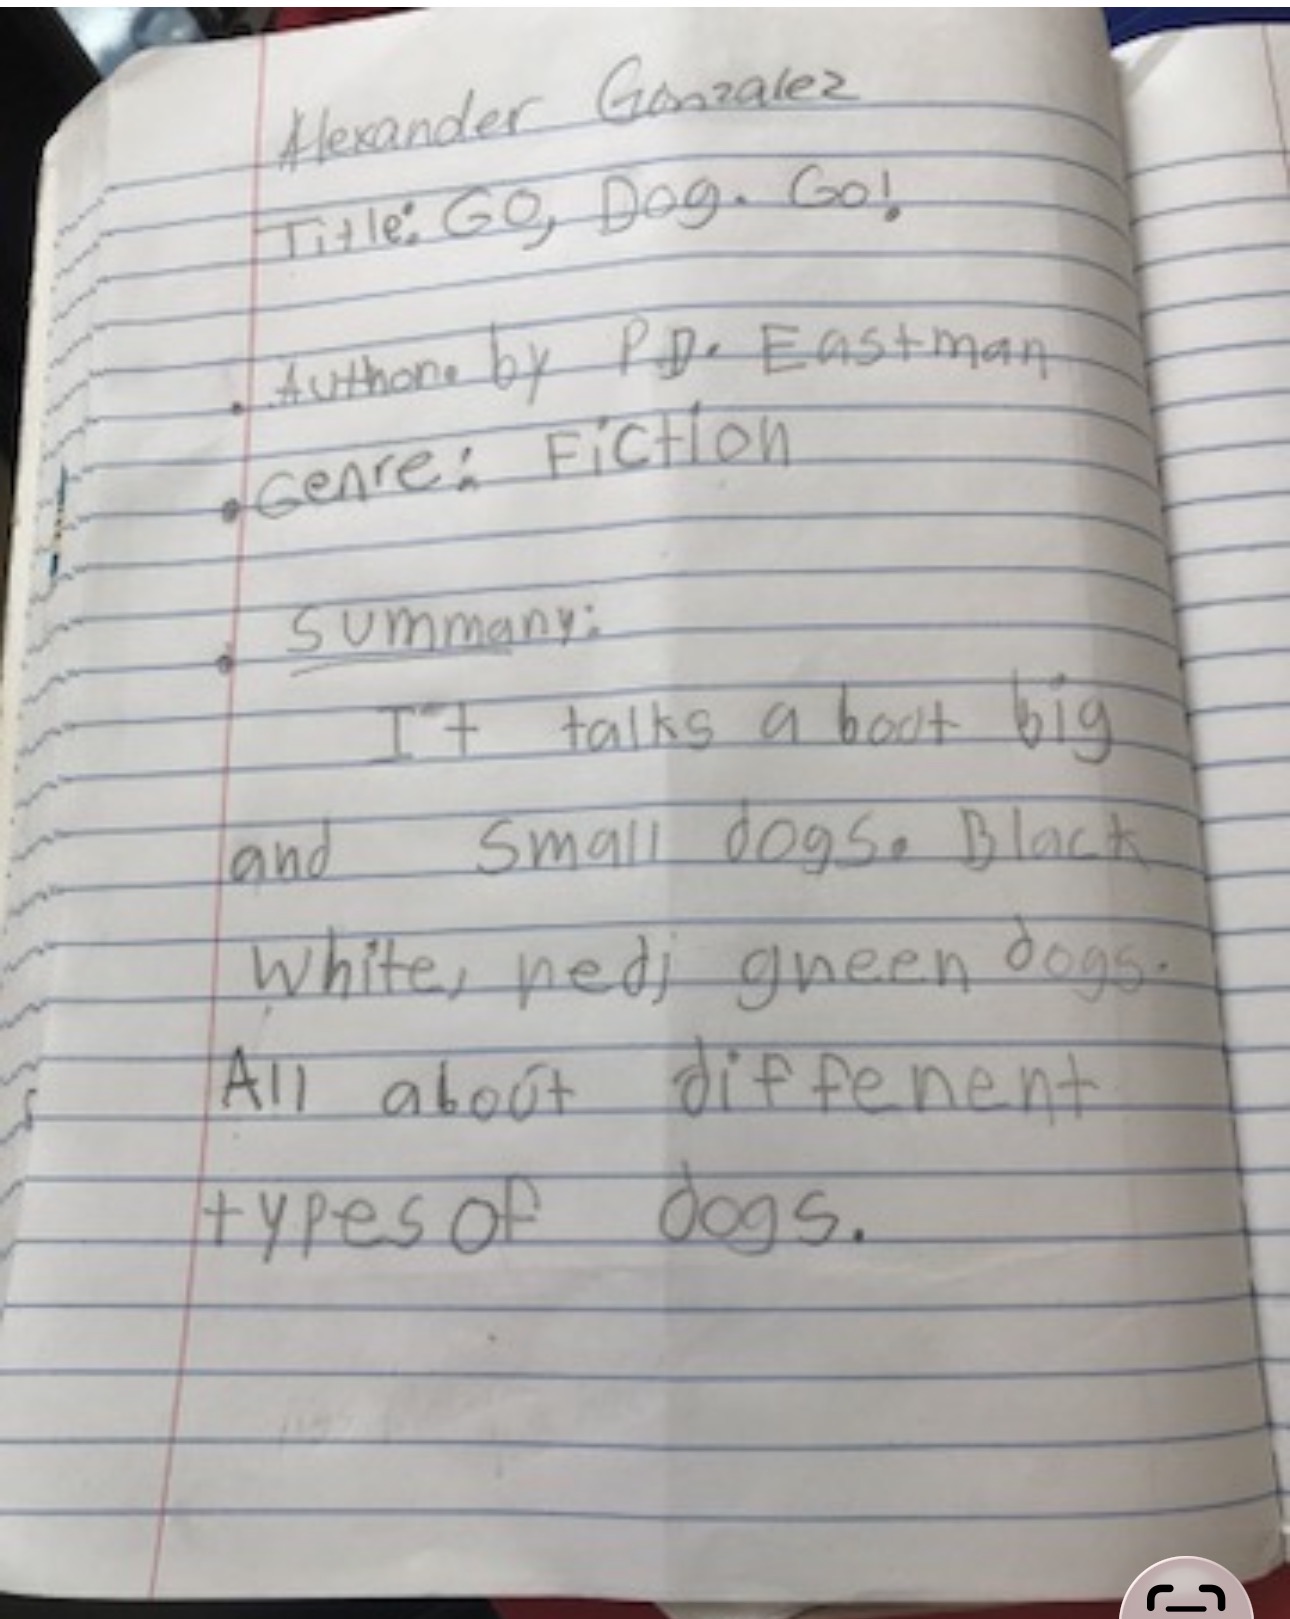 Alexander Gonzalez
Title: GO, Dog. Go!
• Author. by P.D. Eastman
• Genre: Fiction
• Summary:
It talks a boot big
and small dogs. Black
White, red, green dogs.
All about different
types of dogs.